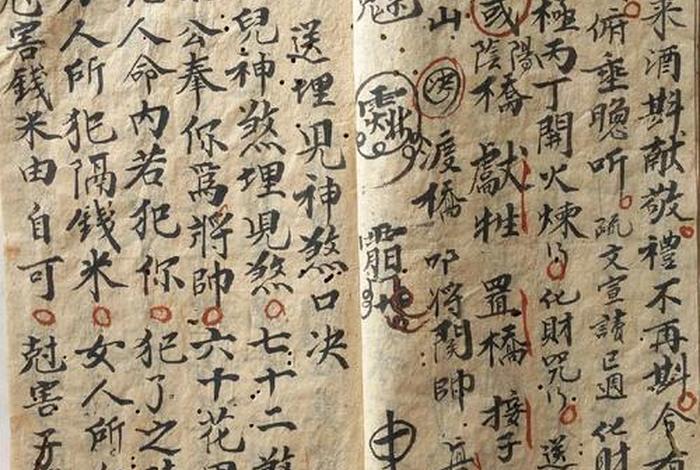 来酒斟献敬禮不再斟令有
俯垂聰听疏文宣讀已週化財
極丙丁開火煉化財咒送
或陰陽橋獻牲置橋接子
山渡橋叩將関帥
送埋見神煞口决
兒神煞埋見煞七十二
公奉你爲將帥六十花
人命内若犯你犯了之
人所犯隔钱米女人所
尅害錢米由自可尅害子